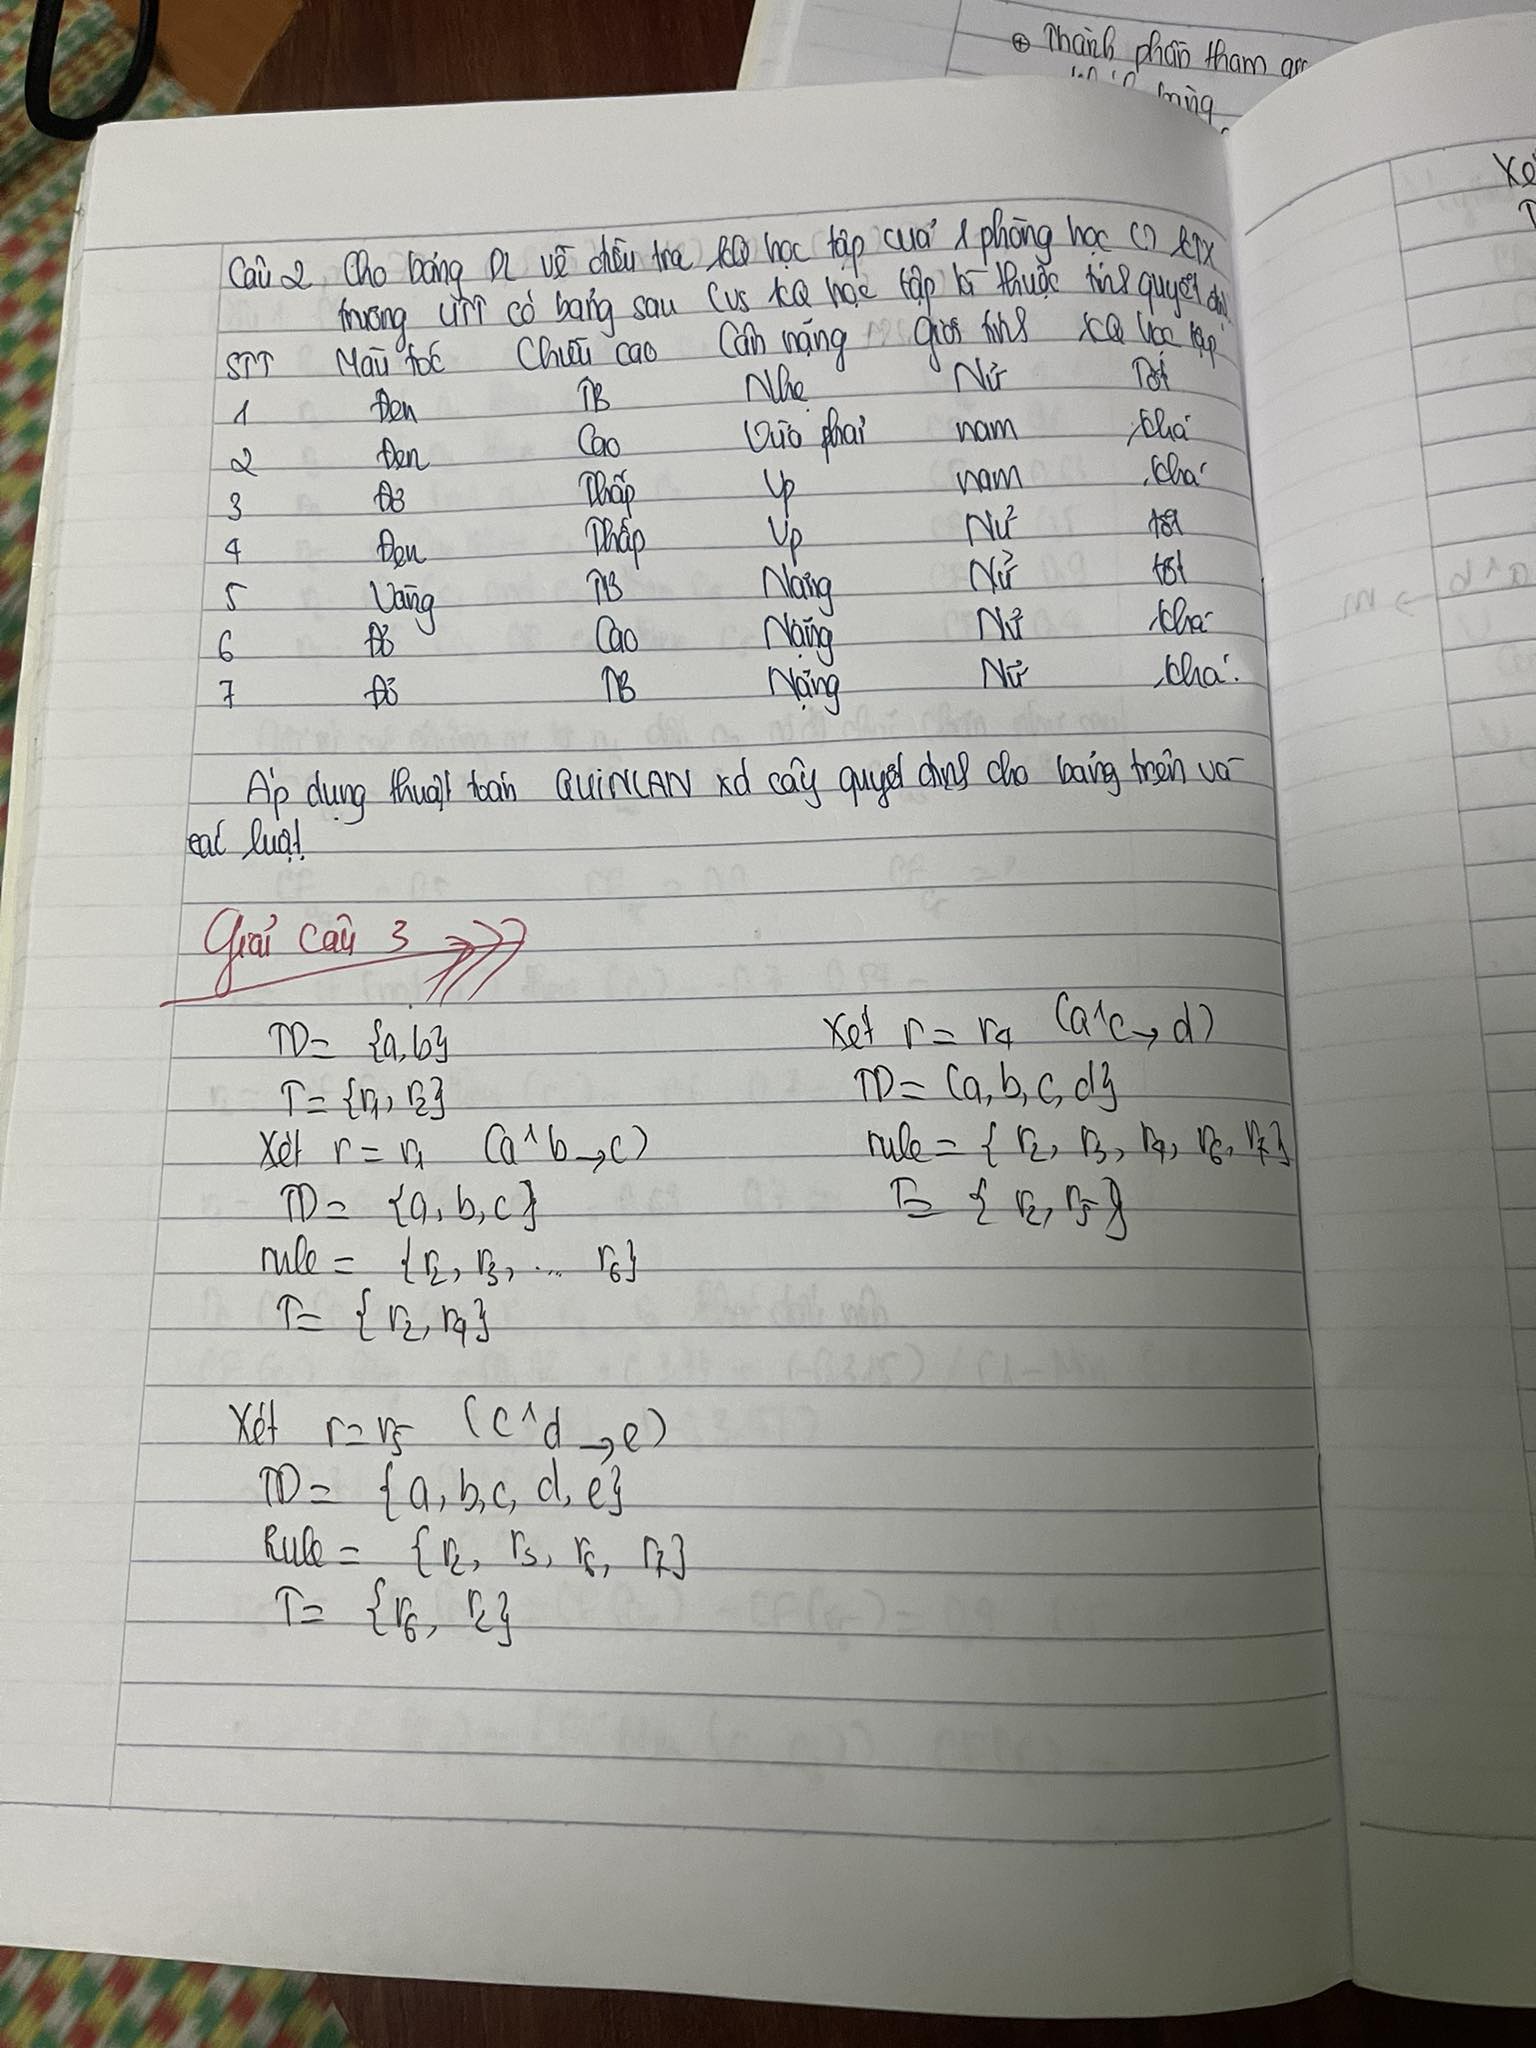 ⊕ Thành phần tham
Câu 2, Cho bảng DL về điều tra KQ học tập của 1 phòng học () KTX
trường UTT có bảng sau (vs KQ học tập là thuộc tính quyết định
STT Màu tóc Chiều cao Cân nặng Giới tính KQ học tập
1 Đen TB Nhẹ Nữ Tốt
2 Đen Cao Vừa phải nam khá
3 Đỏ Thấp Vp nam khá
4 Đen Thấp Vp Nữ tốt
5 Vàng TB Nặng Nữ tốt
6 Đỏ Cao Nặng Nữ khá
7 Đỏ TB Nặng Nữ khá.
Áp dụng thuật toán QUINLAN xd cây quyết định cho bảng trên và
các luật.
Giải câu 3
TD = {a, b}
T = {r1, r2}
Xét r = r1 (a^b → c)
TD = {a, b, c}
rule = {r2, r3, ... r6}
T = {r2, r4}
Xét r = r4 (a^c → d)
TD = (a, b, c, d}
rule = {r2, r3, r4, r6, r7}
T = {r2, r5}
Xét r = r5 (c^d → e)
TD = {a, b, c, d, e}
Rule = {r2, r3, r6, r7}
T = {r6, r2}